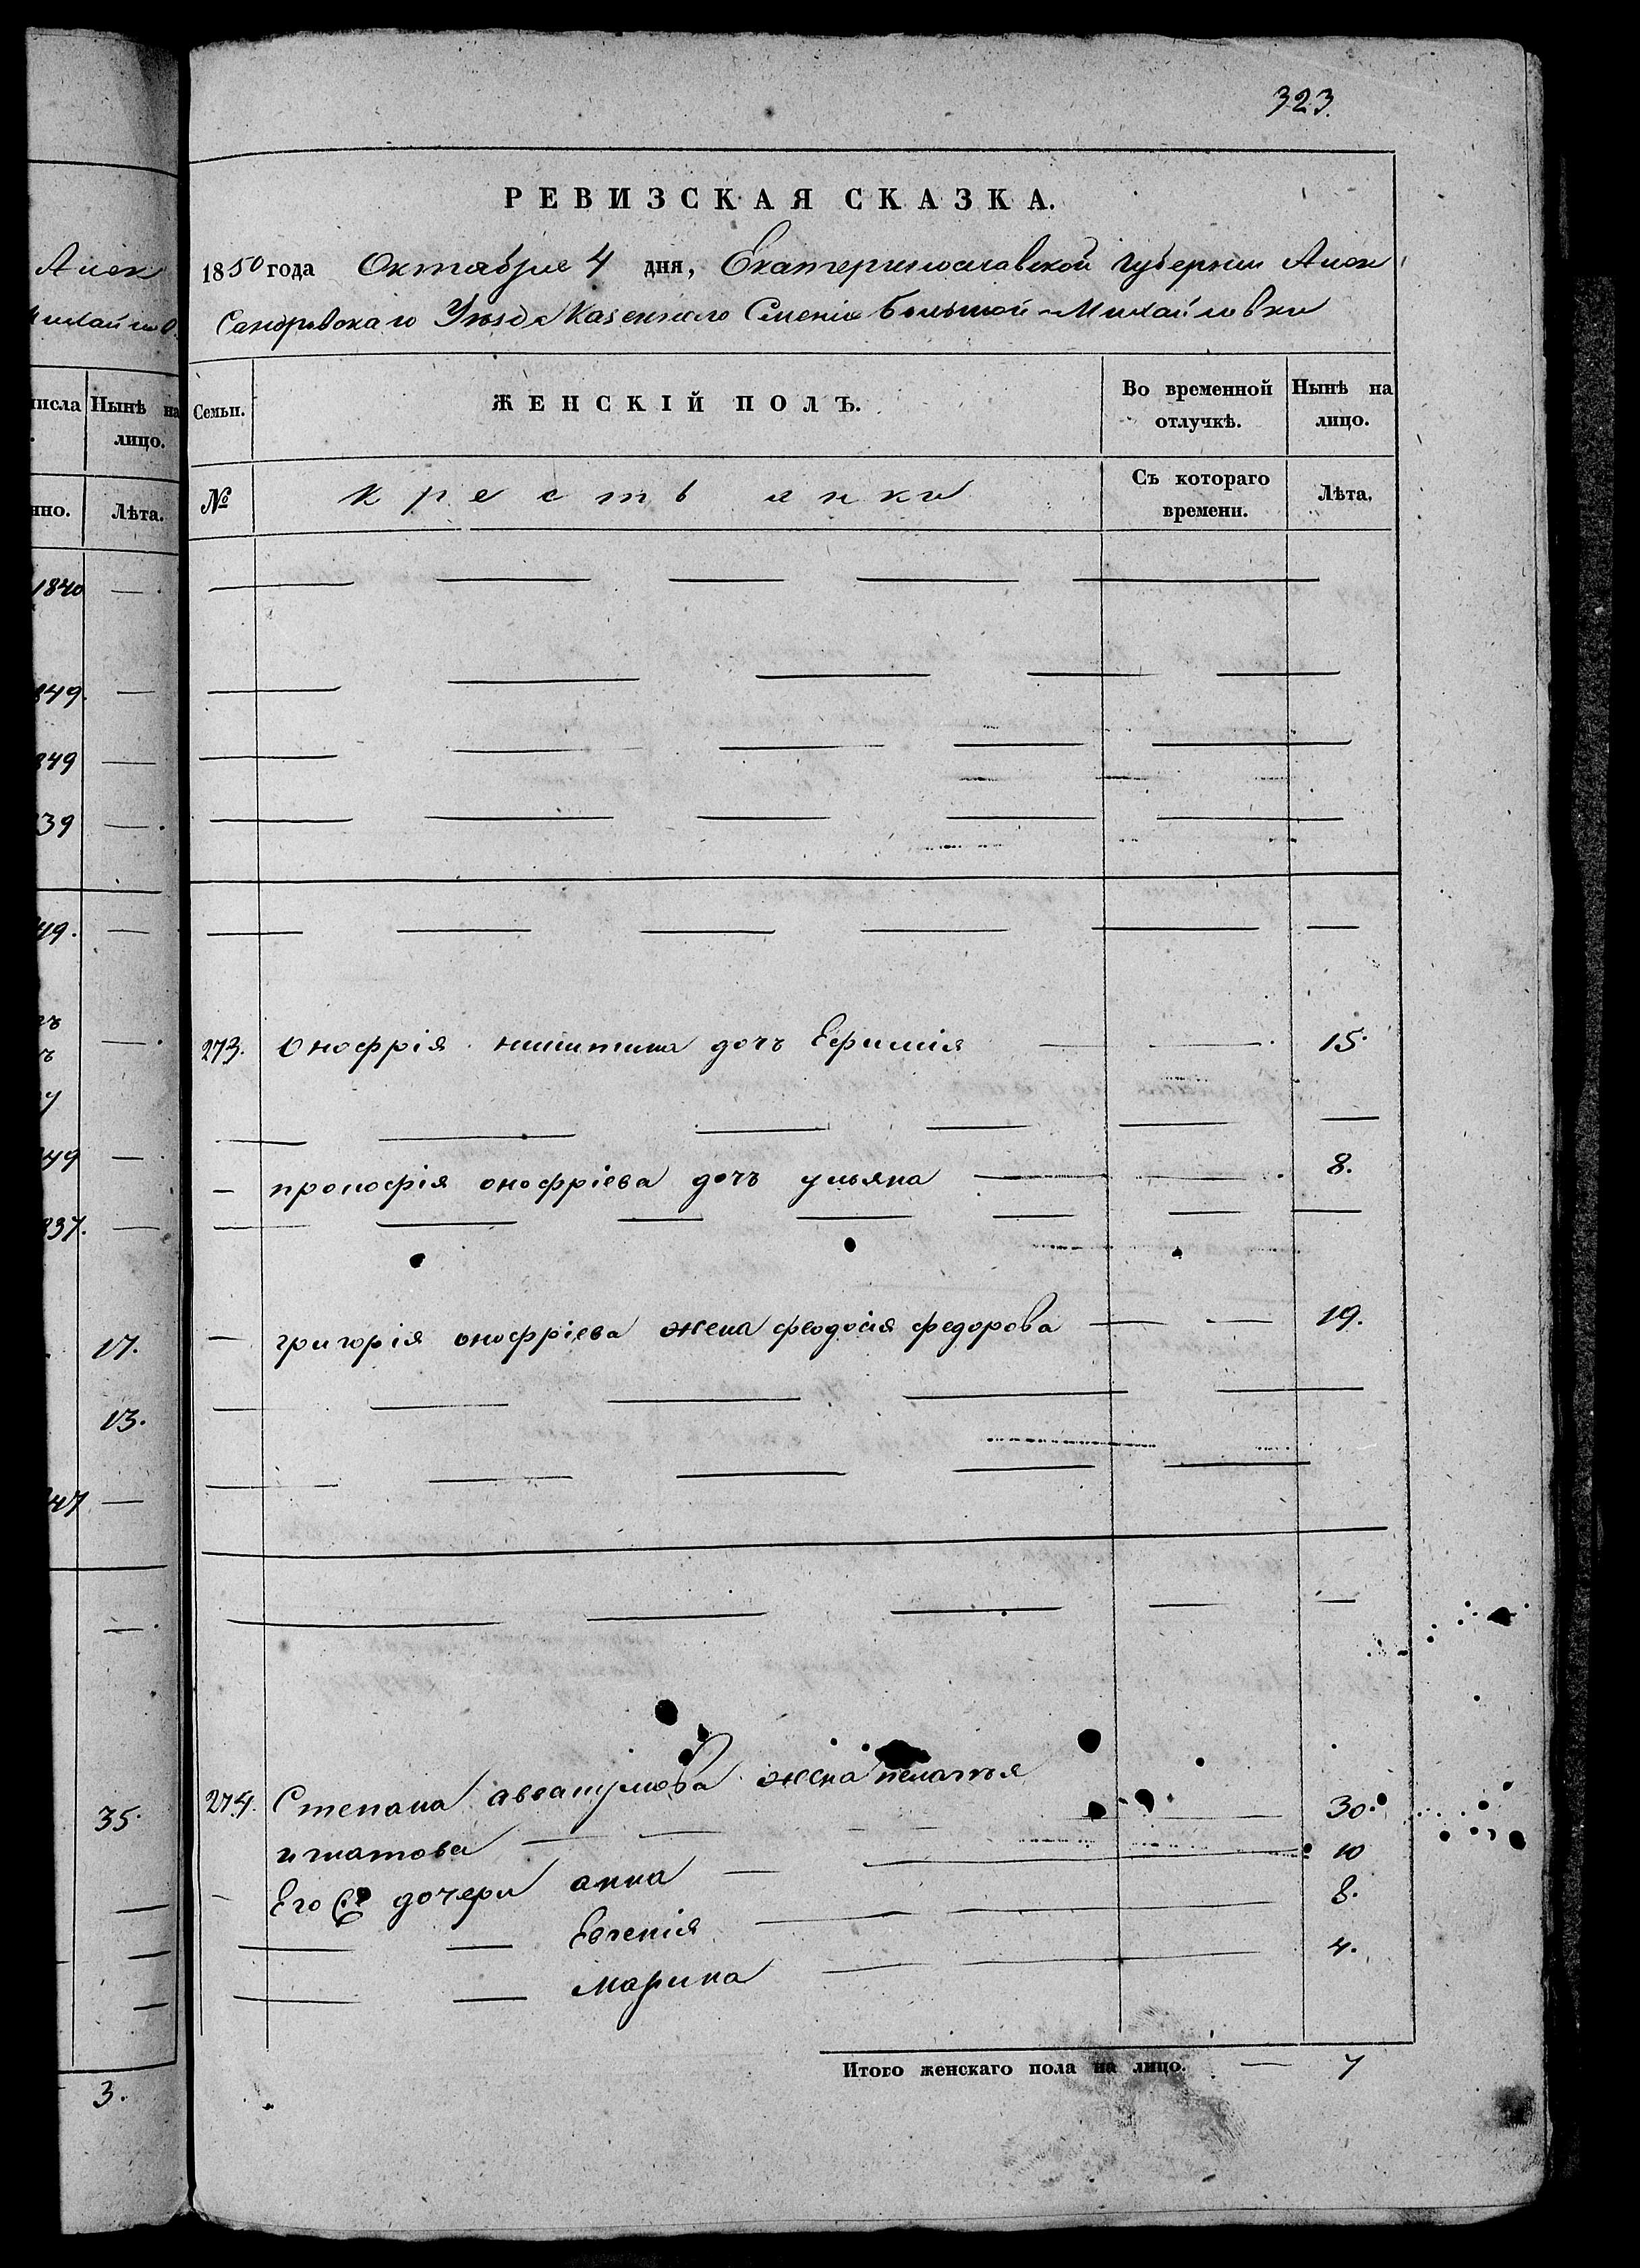 323.
РЕВИЗСКАЯ СКАЗКА.
1850 года Октября 4 дня, Екатеринославской Губернии Алек
сандровскаго Уезда Казеннаго Селенія Большой-Михайловки
Семьи.
ЖЕНСКІЙ ПОЛЪ.
Во временной отлучкѣ.
Нынѣ на лицо.
№
крестьянки
Съ котораго времени.
Лѣта.
273. Онофрія никитина дочь Ефимія 15.
прокофія онофріева дочь ульяна 8.
григорія онофріева жена феодосія федорова 19.
274. Степана аввакумова жена пелагея 30.
игнатова
Его дочери анна 10
Евгенія 8.
Марина 4.
Итого женскаго пола на лицо. 7
Алек
Михайлов
числа
Нынѣ на
лицо.
Лѣта.
1840
849.
849
39
49.
49
837.
17.
13.
47
35.
3.